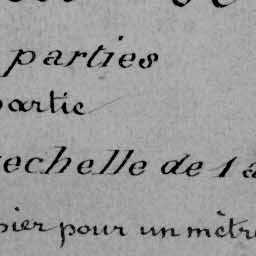 parties
partie
echelle de 1 à
pier pour un mètre